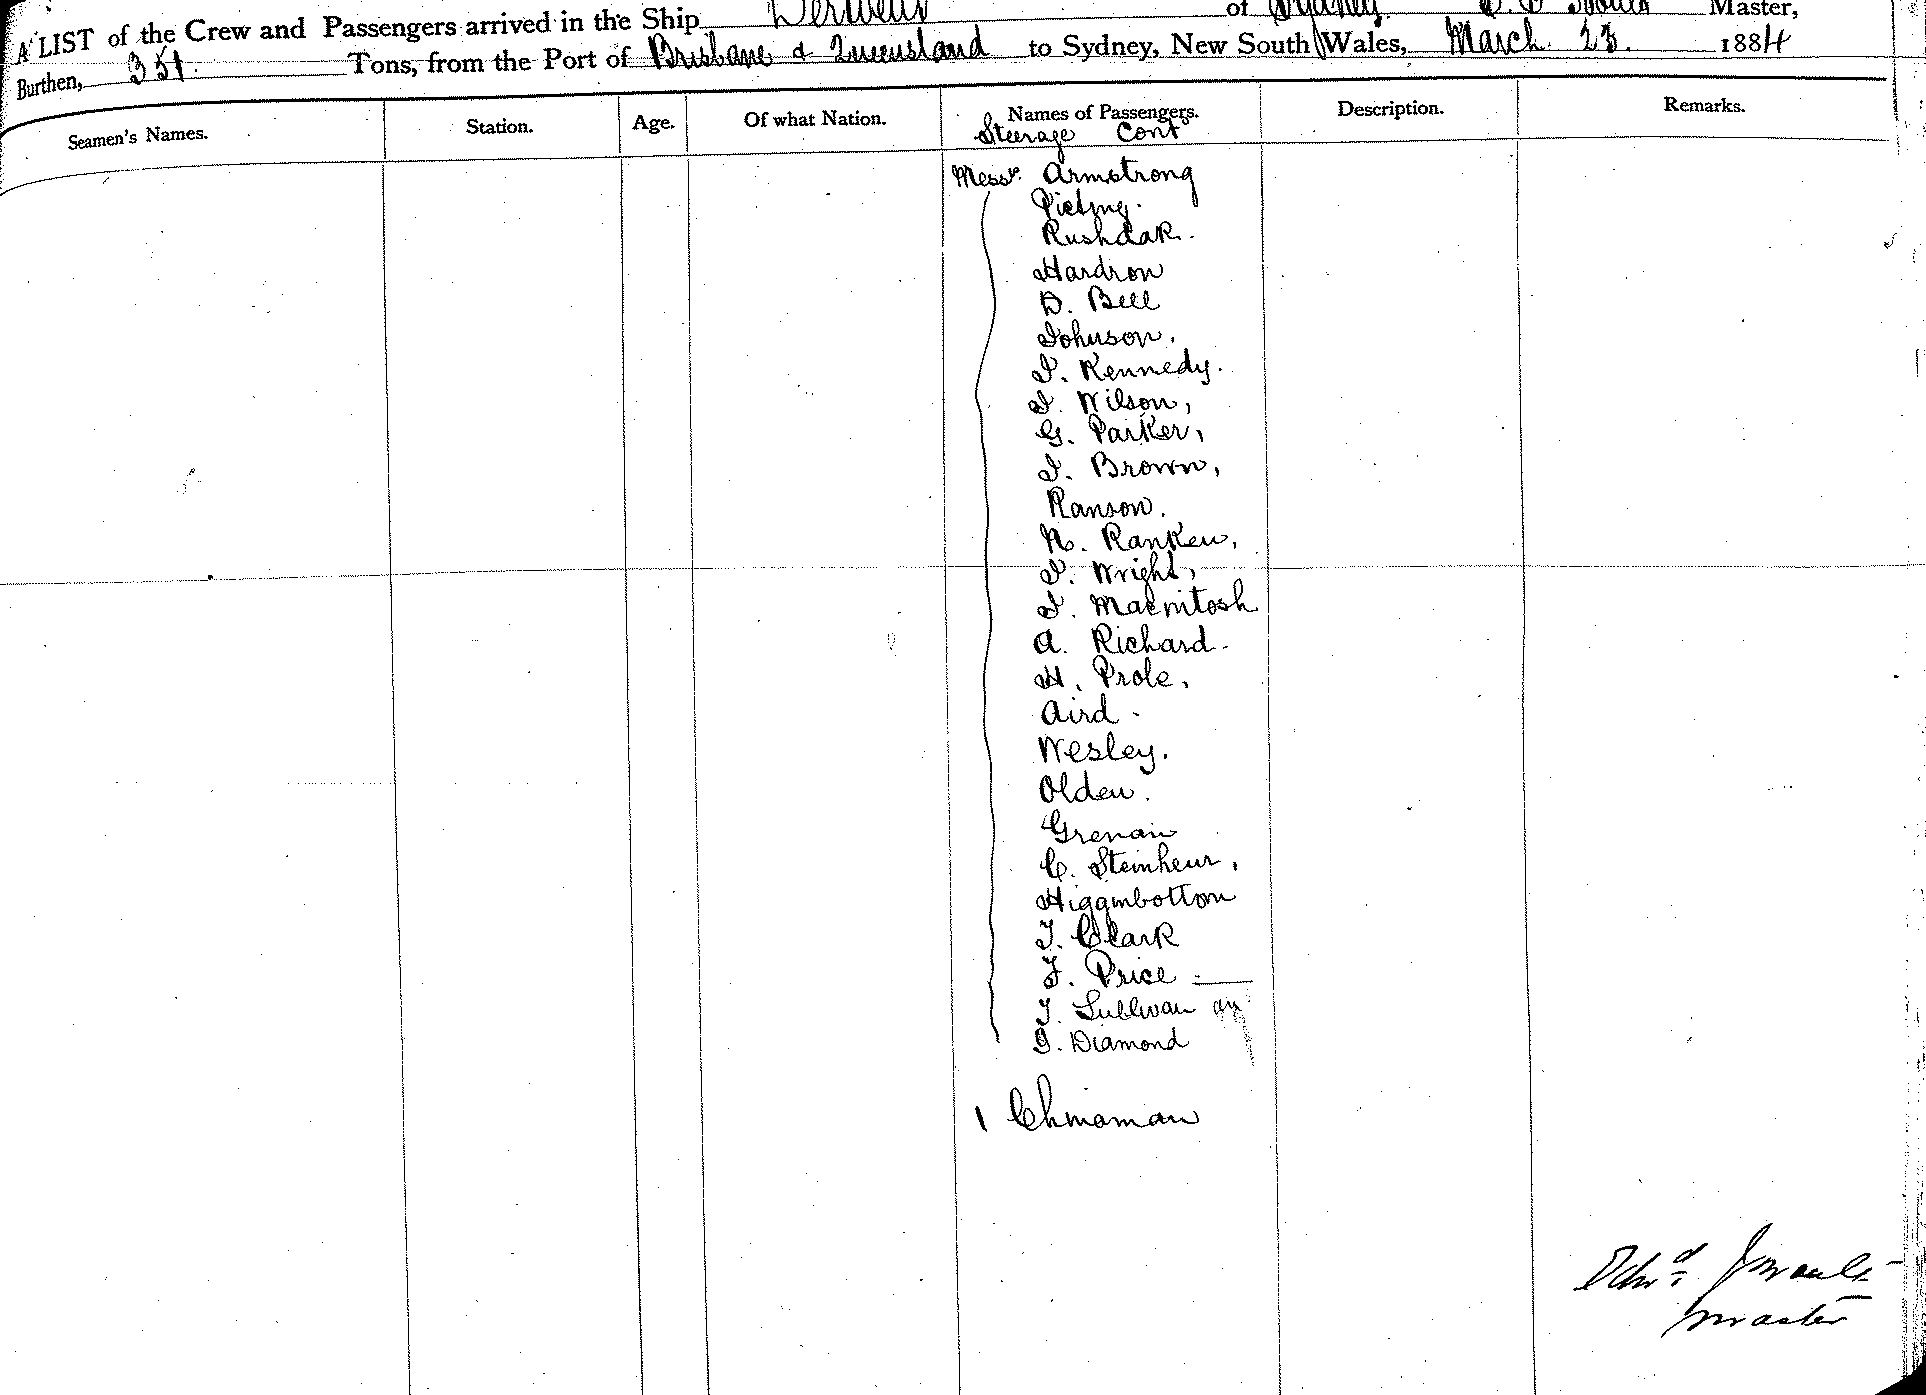 A LIST of the Crew and Passengers arrived in the Ship Derwent of Sydney Master,
Burthen, 351. Tons, from the Port of Brisbane & Queensland to Sydney, New South Wales, March 23. 1884
Seamen's Names. Station. Age. Of what Nation. Names of Passengers. Description. Remarks.
Steerage Cont
Messrs. Armstrong
Rushdak.
Hardron
D. Bell
Johnson.
J. Kennedy.
J. Wilson,
G. Parker,
J. Brown,
Ranson.
N. Ranken,
J. Wright,
J. Macintosh
A. Richard.
H. Prole,
Aird.
Wesley.
Olden.
Grenan
C. Steinheur,
Higginbottom
T. Clark
F. Price
T. Sullivan
J. Diamond
1 Chinaman
Master